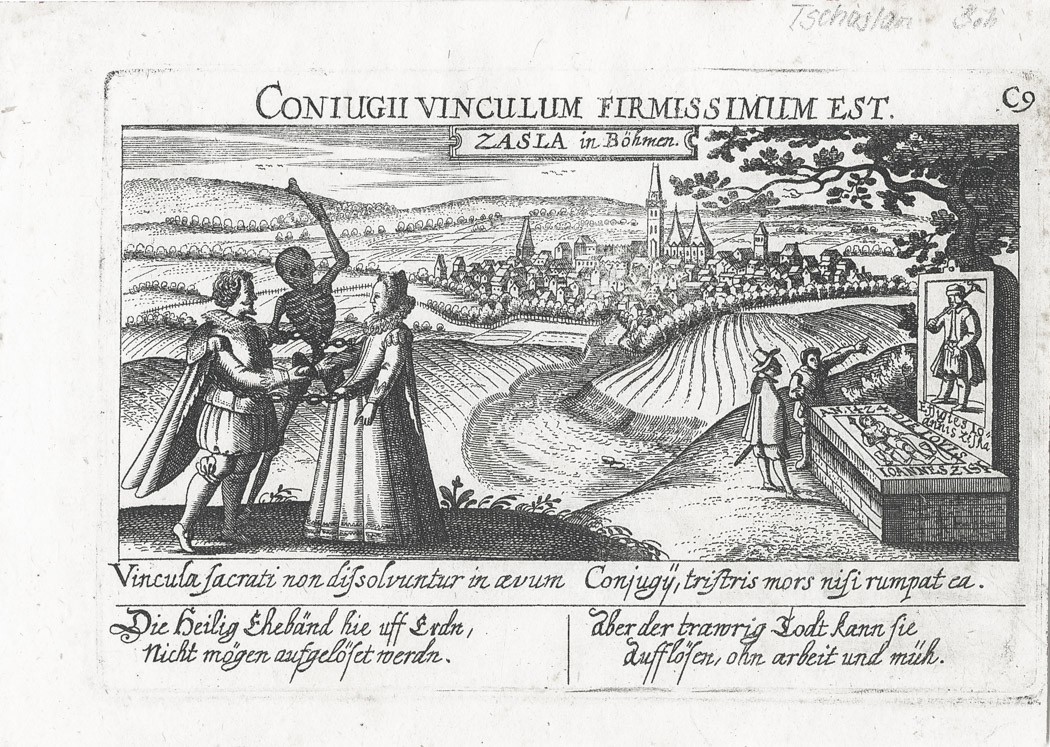 Tschaslau Böh
CONIUGII VINCULUM FIRMISSIMUM EST.
C9
ZASLA in Böhmen.
AN. 1424
IOANNES ZISK
Effigies Io-
annis Ziska
Vincula sacrati non dissolvuntur in ævum Conjugÿ, tristris mors nisi rumpat ea.
Die Heilig Ehebänd hie uff Erdn,
Nicht mögen aufgelöset werdn.
Aber der trawrig Todt kann sie
Aufflösen, ohn arbeit und müh.